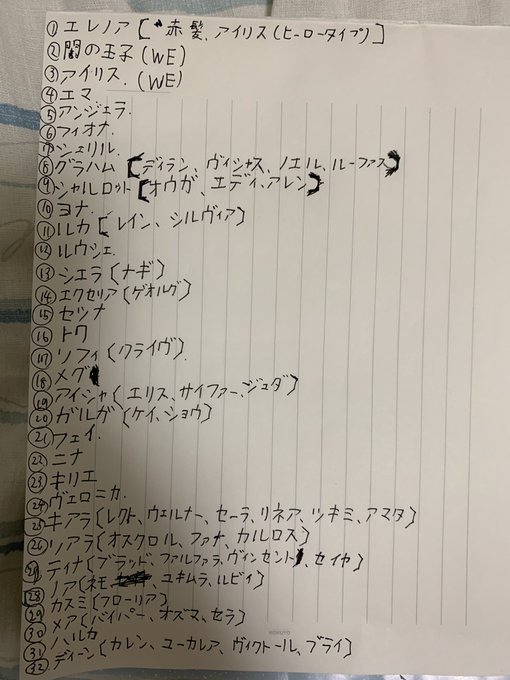 ① エレノア[赤髪、アイリス(ヒーロータイプ)]
② 闇の王子(WE)
③ アイリス.(WE)
④ エマ.
⑤ アンジェラ.
⑥ フィオナ.
⑦ シェリル.
⑧ グラハム[ディラン、ヴィシャス、ノエル、ルーファス]
⑨ シャルロット[オウガ、エディ、アレン]
⑩ ヨナ.
⑪ ルカ[レイン、シルヴィア]
⑫ ルウシェ.
⑬ シエラ(ナギ)
⑭ エクセリア(ゲオルグ)
⑮ セツナ
⑯ トワ
⑰ ソフィ(クライヴ).
⑱ メグ
⑲ アイシャ(エリス、サイファー、ジュダ)
⑳ ガルガ(ケイ、ショウ)
㉑ フェイ.
㉒ ニナ
㉓ キリエ
㉔ ヴェロニカ.
㉕ キアラ(レクト、ウェルナー、セーラ、リネア、ツキミ、アマタ)
㉖ リアラ(オスクロル、ファナ、カルロス)
ティナ(ブラッド、ファルファラ、ヴィンセント、セイヤ)
28 ノア(ネモ、ユキムラ、ルビィ)
㉙ カスミ(フローリア)
㉚ メア(バイパー、オズマ、セラ)
ハルカ
㉛
㉜ ディーン(カレン、ユーカレア、ヴィクトール、ブライ)
KOKUYO